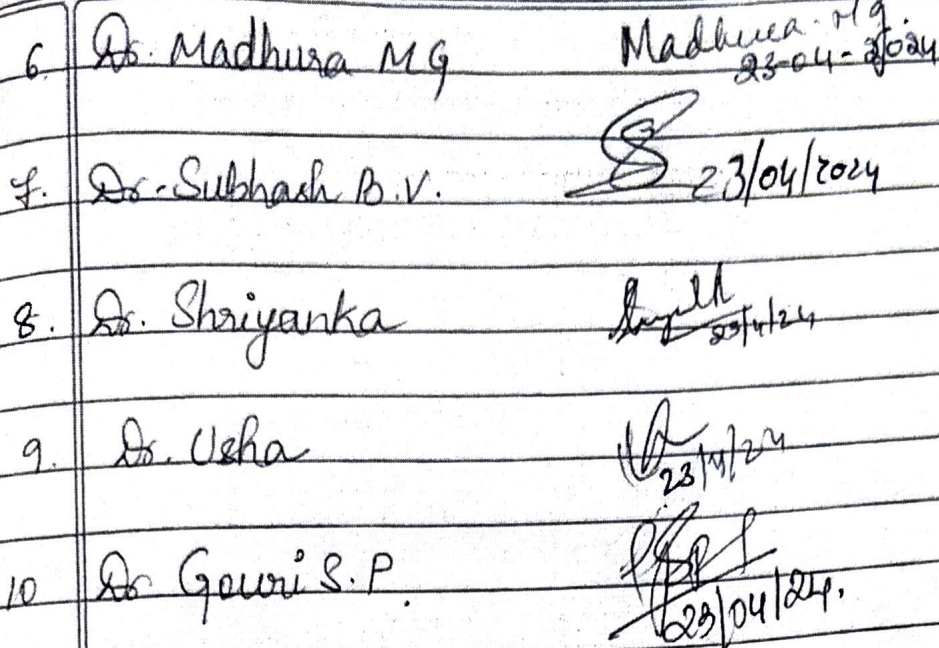 6. Dr. Madhura MG Madhura. M g. 23-04-2024
7. Dr. Subhash B.V. 23/04/2024
8. Dr. Shriyanka 23/4/24
9. Dr. Usha 23/4/24
10 Dr Gouri S.P. 23/04/24.